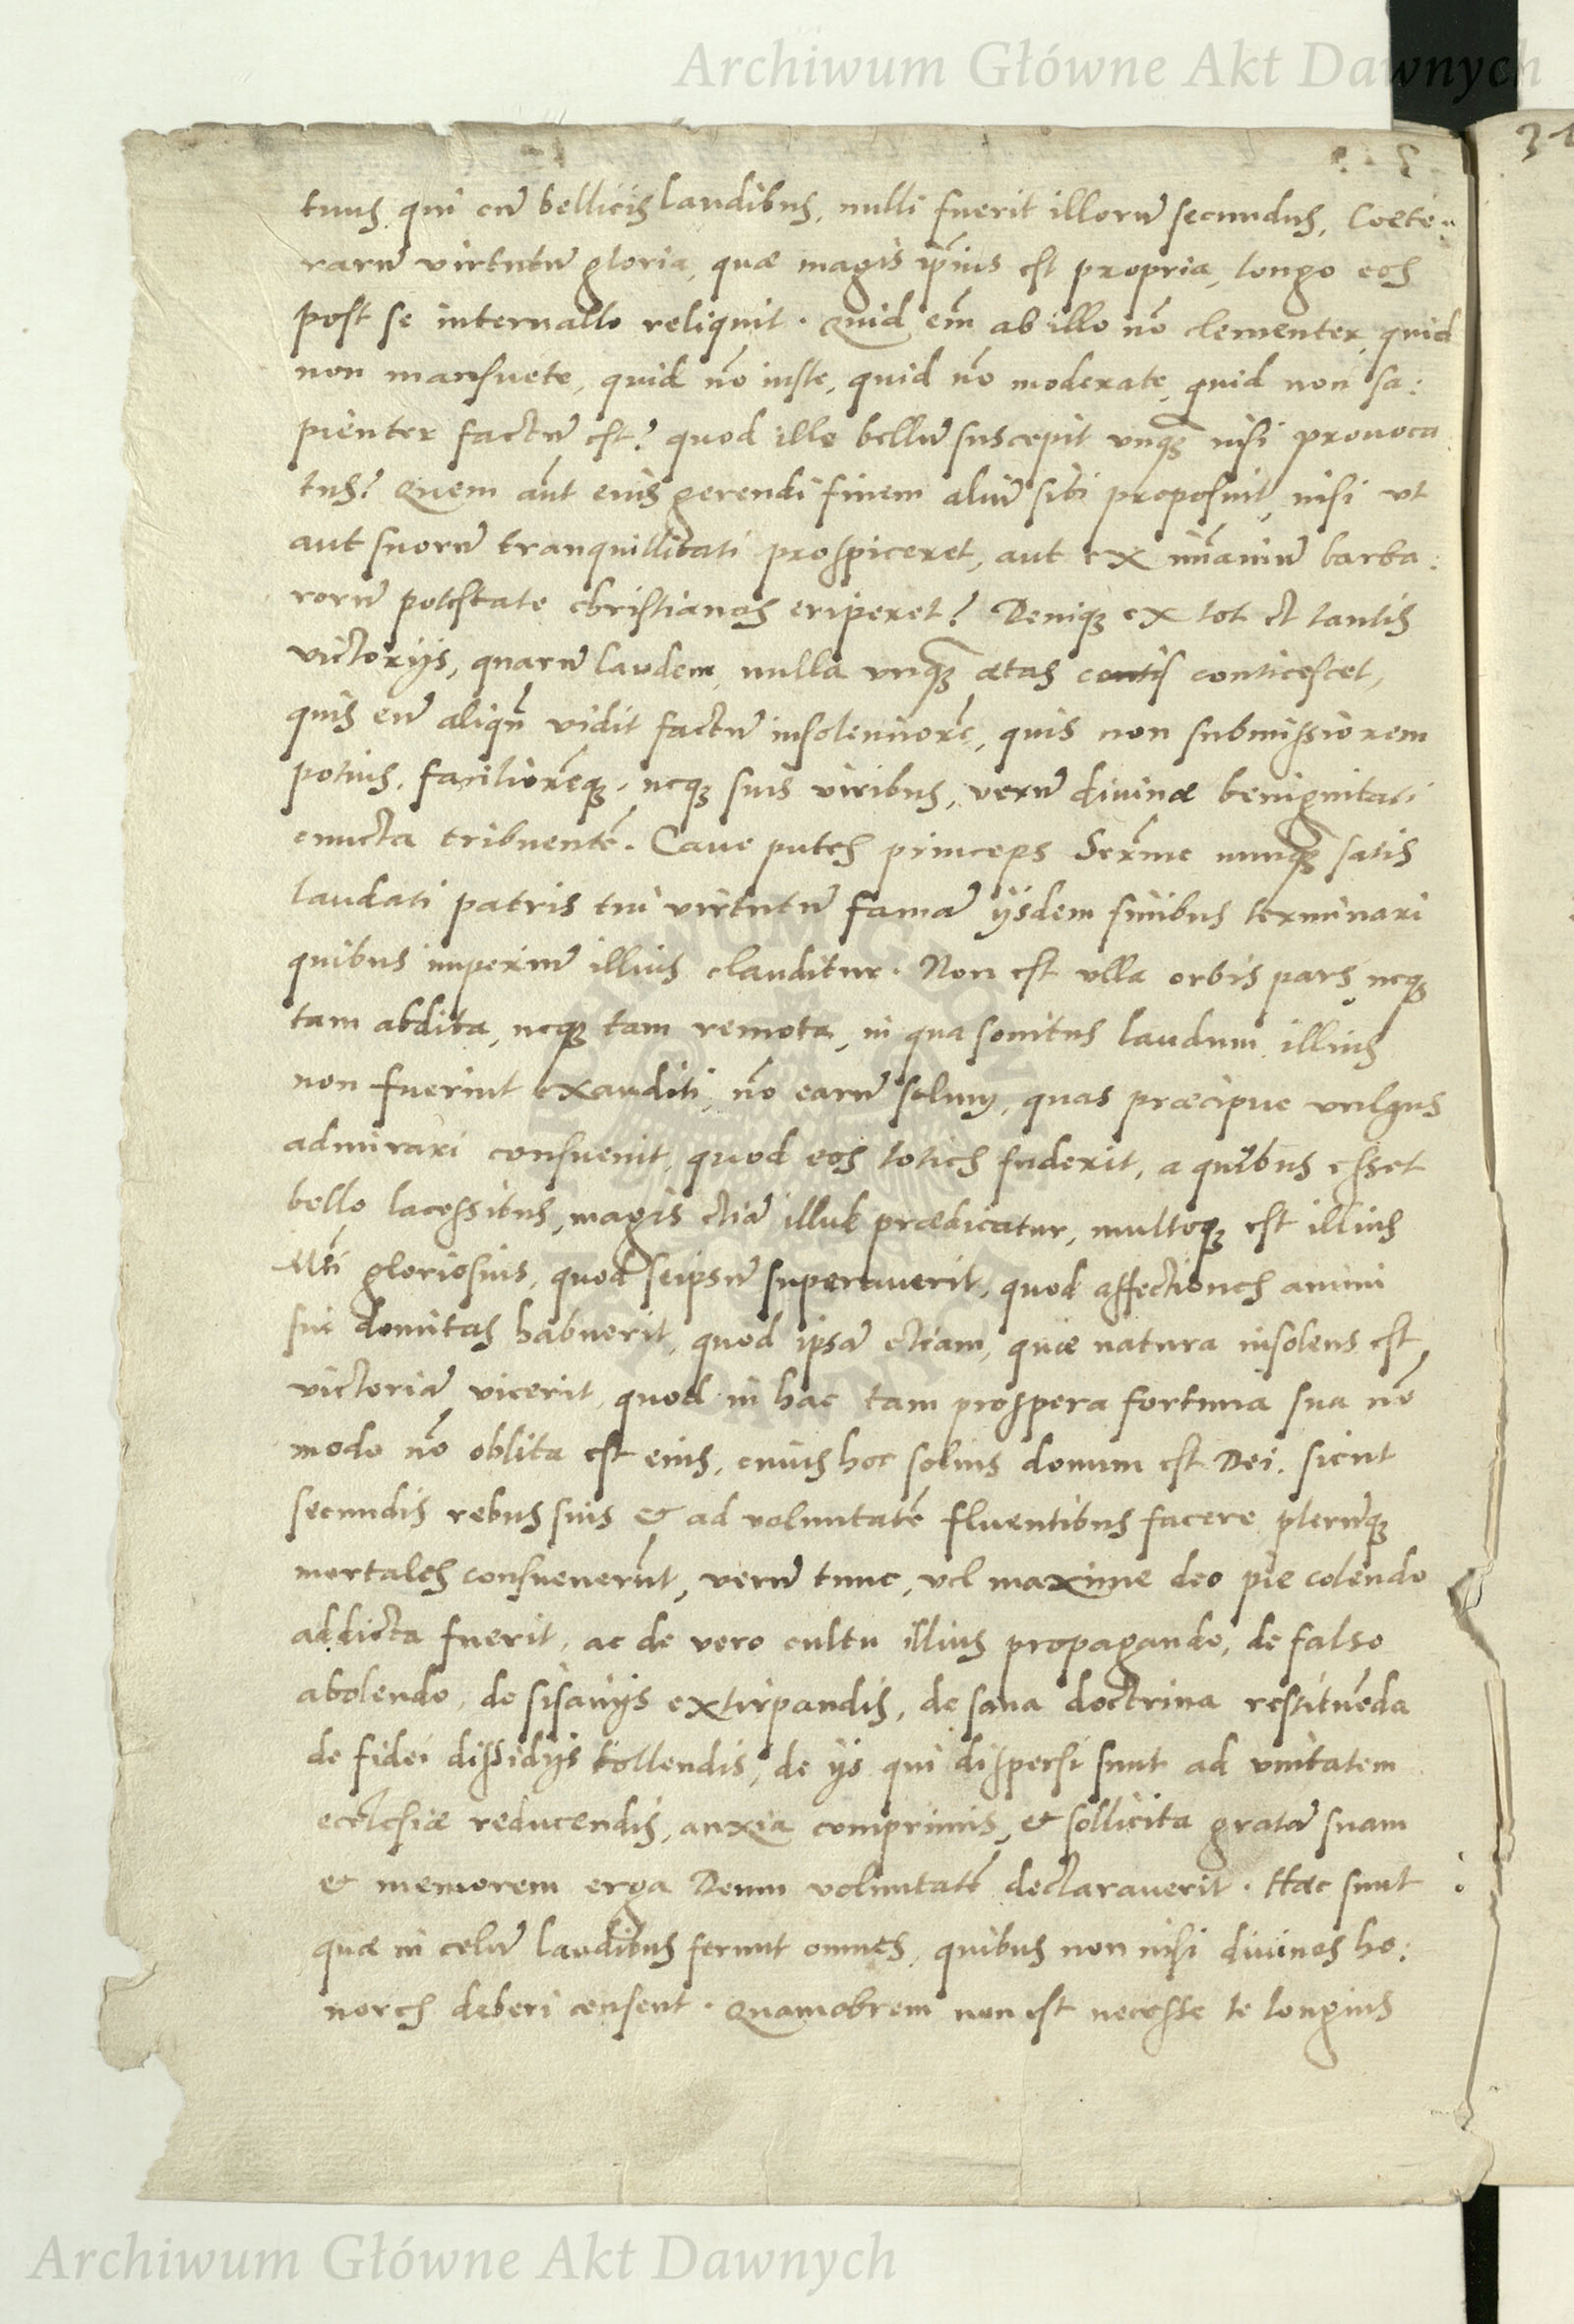 Archiwum Główne Akt Dawnych
31
tuus qui cũ bellicis laudibus, nulli fuerit illorũ secundus, Coete:
rarũ virtutũ gloria, quæ magis ip̃ius est propria, longo eos
post se interuallo reliquit. Quid em̃ ab illo nõ clementer, quid
non mansuete, quid nõ iuste, quid nõ moderate, quid non sa:
pienter factũ est? quod ille bellũ suscepit vnqȝ nisi prouoca
tus? Quem aũt eius gerendi finem aliũ sibi proposuit, nisi vt
aut suorũ tranquillitati prospiceret, aut ex im̃aniũ barba:
rorũ potestate christianos eriperet? Deniqȝ ex tot et tantis
victorijs, quarũ laudem, nulla vnqȝ ætas contis conticescet,
quis eũ aliqñ vidit factũ insolentiorẽ, quis non submissiorem
potius, faciliorẽqȝ, neqȝ suis viribus, verũ diuinæ benignitati
cuncta tribuentẽ. Caue putes princeps Serm̃e nunqȝ satis
laudati patris tui virtutũ famã ijsdem finibus terminari
quibus imperiũ illius clauditur. Non est vlla orbis pars neqȝ
tam abdita, neqȝ tam remota, in qua sonitus laudum illius
non fuerint exauditi, nõ earũ solum, quas præcipue vulgus
admirari consueuit, quod eos toties fuderit, a quibus esset
bello lacessitus, magis etiã illud prædicatur, multoqȝ est illius
M̃ti gloriosius, quod seipsũ superauerit, quod affectiones animi
sui domitas habuerit, quod ipsã etiam, quæ natura insolens est,
victoriã vicerit, quod in hac tam prospera fortuna sua nõ
modo nõ oblita est eius, cuius hoc solius donum est Dei, sicut
secundis rebus suis & ad voluntatẽ fluentibus facere plerũqȝ
mortales consueuerũt, verũ tunc, vel maxime deo pie colendo
addicta fuerit, ac de vero cultu illius propagando, de falso
abolendo, de sisanijs extirpandis, de sana doctrina restituẽda
de fidei dissidijs tollendis, de ijs qui dispersi sunt ad vnitatem
ecclesiæ reducendis, anxia comprimis, & sollicita gratã suam
& memorem erga Deum voluntatẽ declarauerit. Hæc sunt
quæ in celũ laudibus ferunt omnes, quibus non nisi diuinos ho:
nores deberi censent. Quamobrem non est necesse te longius
Archiwum Główne Akt Dawnych